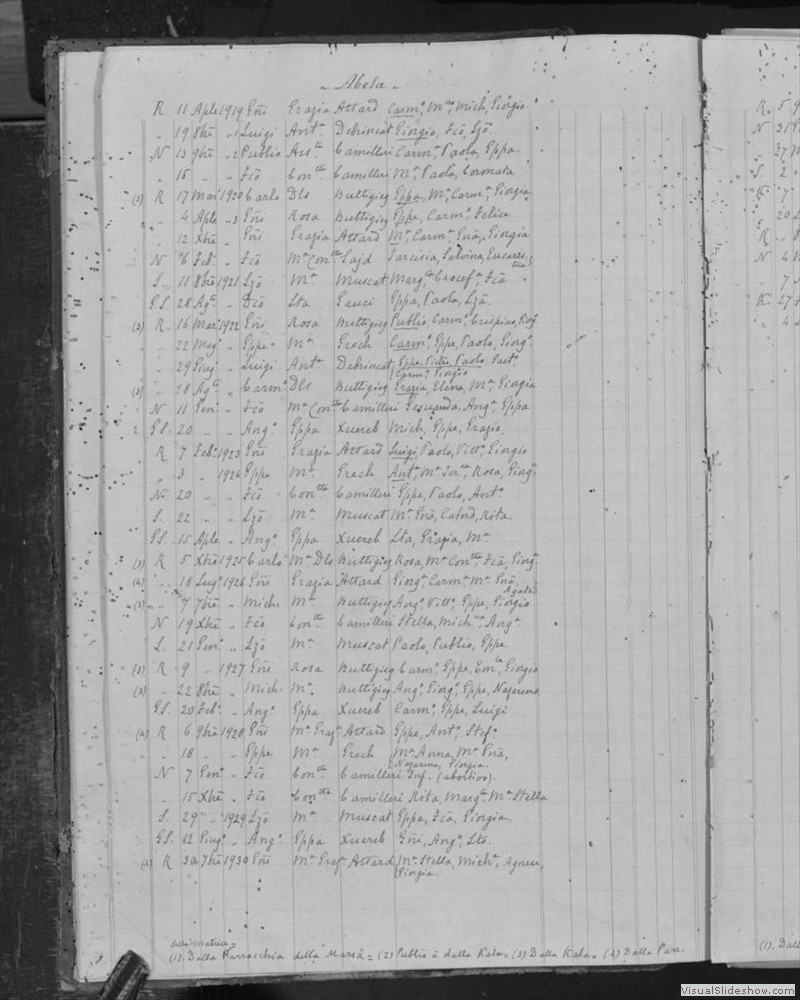 - Abela -
R 11 Aple 1919 Gñi Grazia Attard Carmo, Ma, Mich, Giorgio.
" 19 8bre " Luigi Anta Debrincat Giorgio, Fcõ, Ljõ.
N 13 9bre " Publio Anta Camilleri Carma, Paola, Eppa.
" 15 " " Fcõ Contta Camilleri Ma, Paola, Coronata
(3) R 17 Mar 1920 Carlo Dls Buttigieg Eppa, Ma, Carma, Giorgia
" 4 Aple " Gñi Rosa Buttigieg Eppe, Carmo, Felice
" 12 Xbre " Gñi Grazia Attard Ma, Carma, Gnã, Giorgia
N 6 Feb. " Fcõ Ma Contta Sajd Tarcisia, Salvina,
S. 11 8bre 1921 Ljõ Ma Muscat Marga, Crocefa, Fcã
GS. 28 Ago " Dcõ Lta Gauci Eppa, Paola, Ljã.
(3) R. 16 Mar 1922 Gñi Rosa Buttigieg Publio, Carmo, Crispino,
" 22 Mag " Eppe Ma Grech Carmo, Eppe, Paolo, Giorgo
" 29 Giug " Luigi Anta Debrincat Eppe, Paolo,
Carmo, Giorgio
(3) " 18 Ago " Carmo Dls Buttigieg Grazia, Elena, Ma, Giorgia
N 11 Gen. " Fcõ Ma Contta Camilleri Anga, Eppa
GS. 20 " " Ango Eppa Xuereb Mich, Eppe, Grazio
R 7 Feb. 1923 Gñi Grazia Attard Luigi, Paolo, Vitto, Giorgio
" 3 " 1924 Eppe Ma Grech Anta, Ma Rosa, Giorga
N 20 " " Fcõ Contta Camilleri Eppe, Paolo, Anto
S. 22 " " Ljõ Ma Muscat Ma Gnã, Rita.
GS. 15 Aple " Ango Eppa Xuereb Lta, Grazia, Ma
(3) R 5 Xbre 1925 Carlo Ma Dls Buttigieg Rosa, Ma Contta, Fcã, Giorga
(4) " 18 Lugo 1926 Gñi Grazia Attard Giorga, Carma, Ma Gnã,
Agata
(3) " 7 7bre " Mich Ma Buttigieg Ango, Vitto, Eppe, Giorgio
N 19 Xbre " Fcõ Contta Camilleri Stella, Micha, Anga
S. 21 Gen. " Ljõ Ma Muscat Paolo, Publio, Eppe.
(3) R 9 " 1927 Gñi Rosa Buttigieg Carmo, Eppe, Giorgio
(3) " 22 8bre " Mich Ma Buttigieg Ango, Giorgo, Eppe, Nazareno
GS. 20 Feb. " Ango Eppa Xuereb Carmo, Eppe, Luigi
(4) R 6 9bre 1928 Gñi Ma Graza Attard Eppe, Anto, Stefo
" 18 " " Eppe Ma Grech Ma Anna, Ma Gnã,
Nazarena, Giorgia.
N 7 Gen. " Fcõ Contta Camilleri Inf. (abortivo).
" 15 Xbre " Fcõ Contta Camilleri Rita, Marga, Ma Stella
S. 29 " 1929 Ljõ Ma Muscat Eppa, Fcã, Giorgia.
GS. 12 Giugo " Ango Eppa Xuereb Gñi, Ango, Lto.
R 30 7bre 1930 Gñi Ma Graza Attard Ma Stella, Micha, Agnese,
Giorgia.
della Matrice
(1) Dalla Parrocchia della Marsa = (2) Publio è dalla Kala = (3) Dalla Kala = (4) Dalla Parr.
R. 5
N 31
27
S. 2
7
20
R 8
N 4
7
K. 27
4
(1). Dall
VisualSlideshow.com